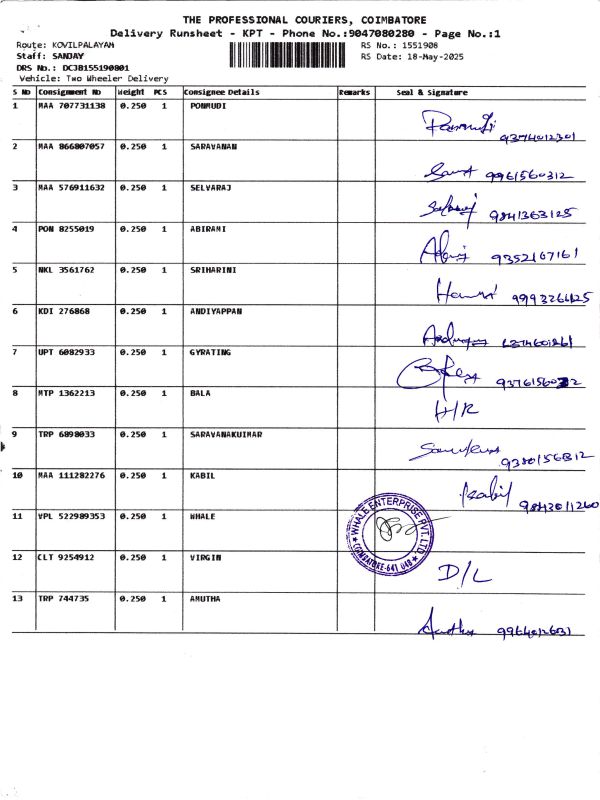 THE PROFESSIONAL COURIERS, COIMBATORE
Delivery Runsheet - KPT - Phone No.:9047080280 - Page No.:1
Route: KOVILPALAYAM RS No.: 1551908
Staff: SANJAY RS Date: 18-May-2025
DRS No.: DCJB155190801
Vehicle: Two Wheeler Delivery
S No Consignment No Weight PCS Consignee Details Remarks Seal & Signature
1 MAA 707731138 0.250 1 PONMUDI
9374012301
2 MAA 866807057 0.250 1 SARAVANAN
9961560312
3 MAA 576911632 0.250 1 SELVARAJ
9841363125
4 PON 8255019 0.250 1 ABIRAMI
9352167161
5 NKL 3561762 0.250 1 SRIHARINI
6 KDI 276868 0.250 1 ANDIYAPPAN
7 UPT 6082933 0.250 1 GYRATING
8 MTP 1362213 0.250 1 BALA
H/R
9 TRP 6898033 0.250 1 SARAVANAKUMAR
10 MAA 111282276 0.250 1 KABIL
Kabil 9843011260
11 VPL 522989353 0.250 1 WHALE
WHALE ENTERPRISE PVT. LTD.
COIMBATORE-641 048
12 CLT 9254912 0.250 1 VIRGIN
D/L
13 TRP 744735 0.250 1 AMUTHA